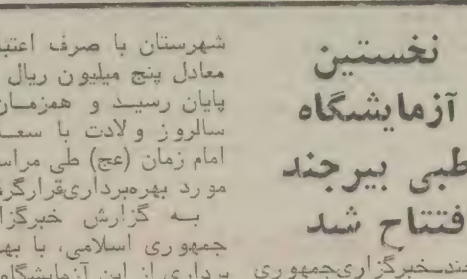 نخستین
آزمایشگاه
طبی بیرجند
فتتاح شد
خبرگزاری‌جمهوری
شهرستان با صرف اعتبا
معادل پنج میلیون ریال
پایان رسید و همزمان
سالروز ولادت با سعـ
امام زمان (عج) طی مراسـ
مورد بهره‌برداری‌قرارگرفـ
به گزارش خبرگزا
جمهوری اسلامی، با بهر
برداری از این آزمایشگاه